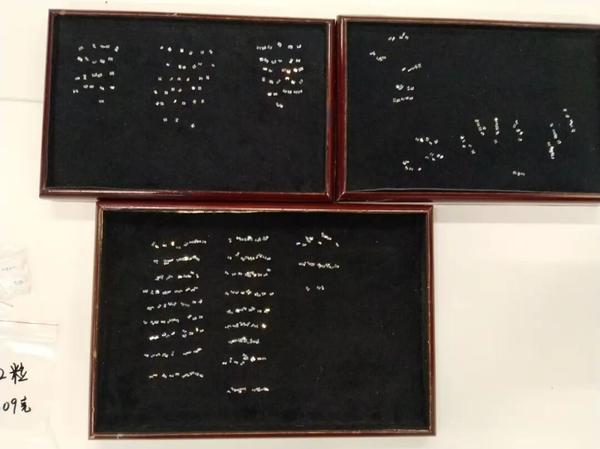 2粒
09克